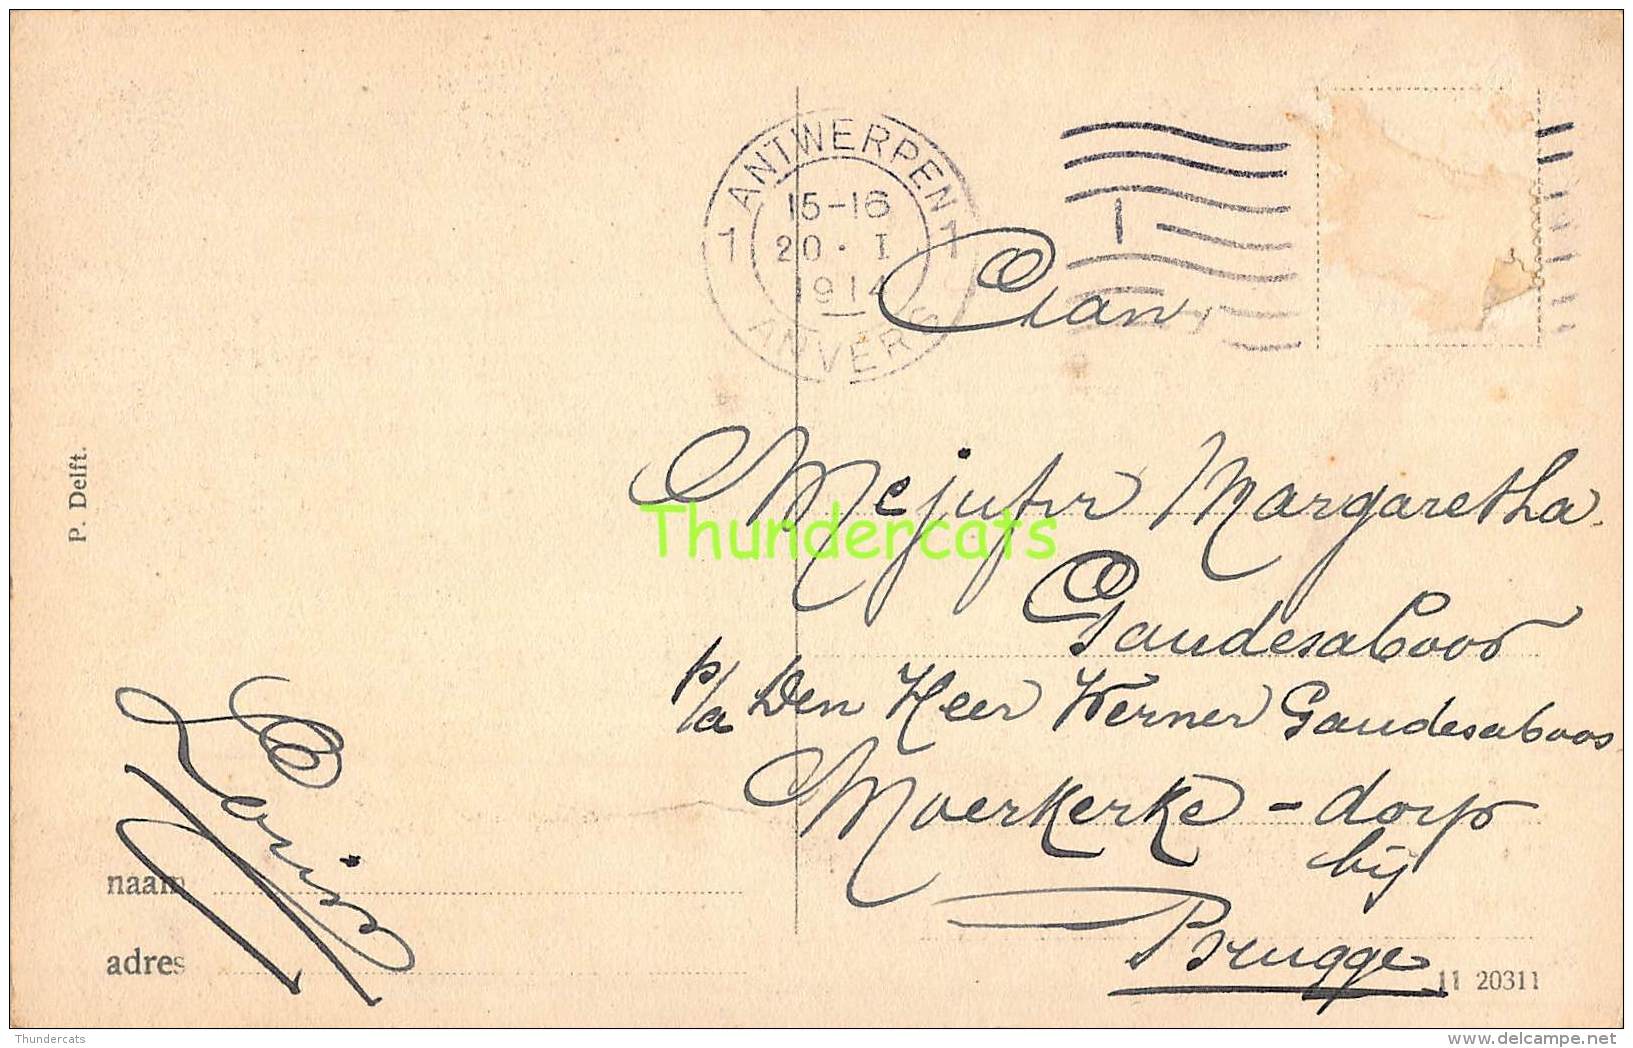 ANTWERPEN
1 15-16 1
20 · I
1914
ANVERS
1
Aan
Mejufvr Margaretha
Gaudesaboos
p/a Den Heer Werner Gaudesaboos
Moerkerke - dorp
bij
Brugge
P. Delft.
Louise
naam
adres
11 20311
Thundercats
Thundercats
www.delcampe.net